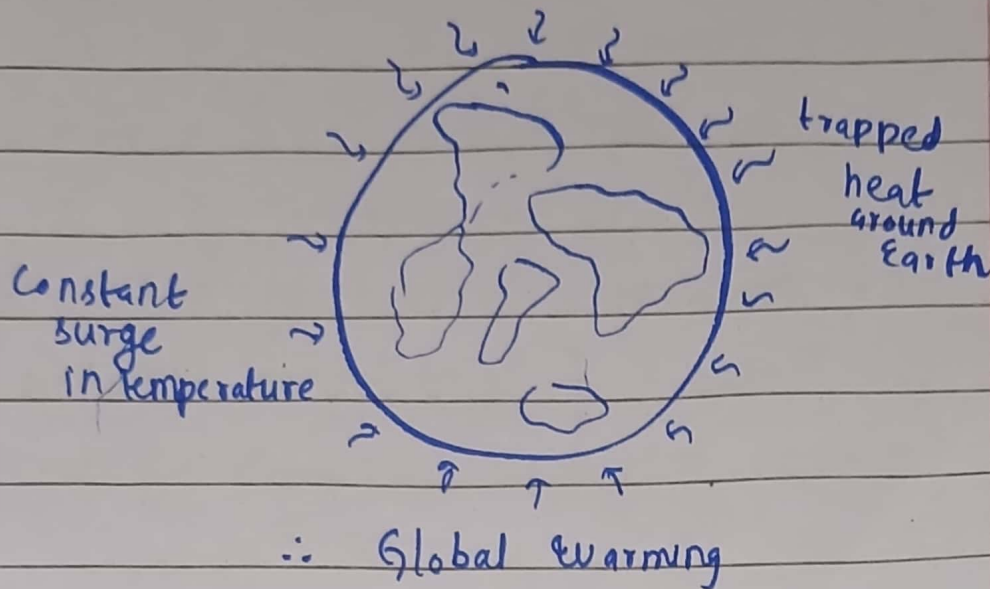 trapped
heat
around
Earth
Constant
surge
in temperature
∴ Global warming